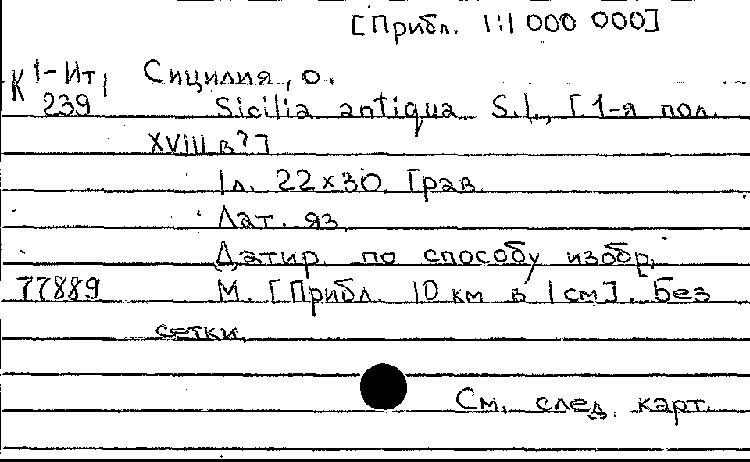 [Прибл. 1:1 000 000]
К 1-Ит, Сицилия, о.
239 Sicilia antiqua S.l., [1-я пол.
XVIII в?]
1 л. 22x30. Грав.
Лат. яз.
Датир. по способу изобр.
77889 М. [Прибл. 10 км в 1 см]. Без
сетки.
См. след. карт.